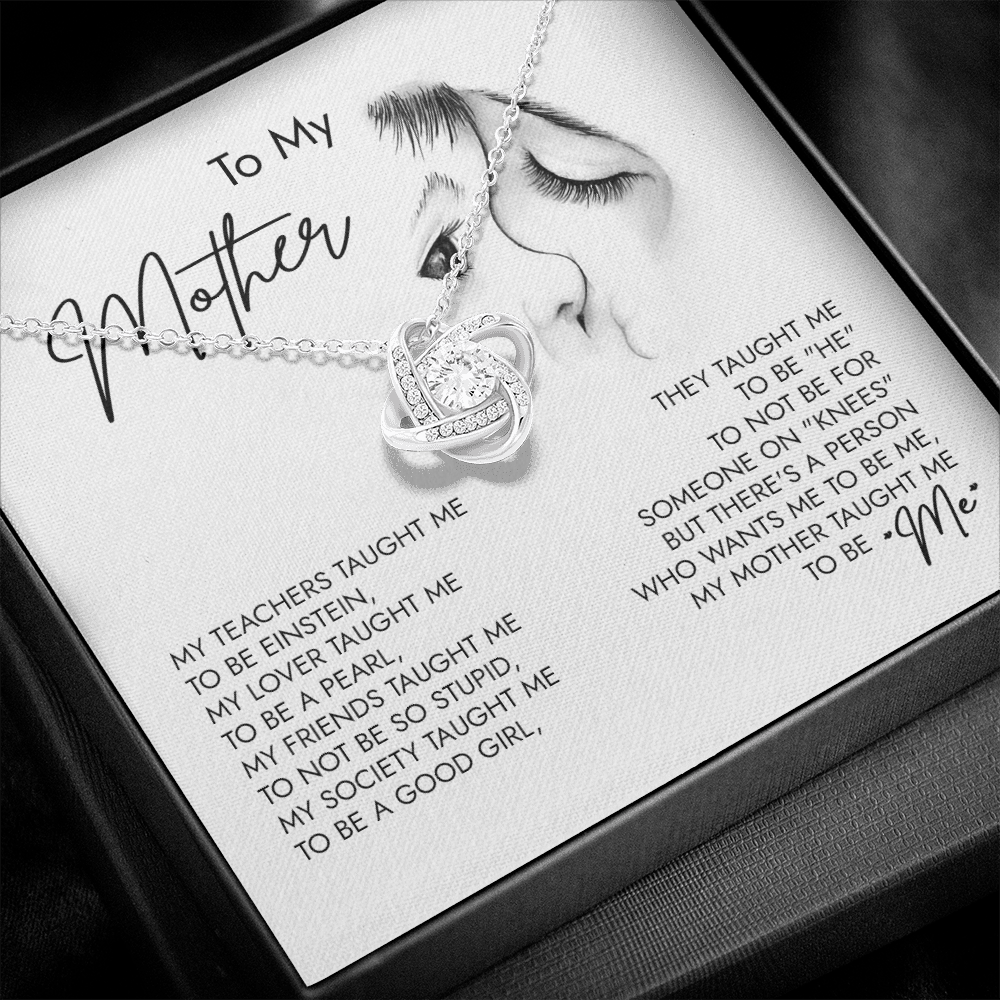 To My
Mother
MY TEACHERS TAUGHT ME
TO BE EINSTEIN,
MY LOVER TAUGHT ME
TO BE A PEARL,
MY FRIENDS TAUGHT ME
TO NOT BE SO STUPID,
MY SOCIETY TAUGHT ME
TO BE A GOOD GIRL,
THEY TAUGHT ME
TO BE "HE"
TO NOT BE FOR
SOMEONE ON "KNEES"
BUT THERE'S A PERSON
WHO WANTS ME TO BE ME,
MY MOTHER TAUGHT ME
TO BE "Me"